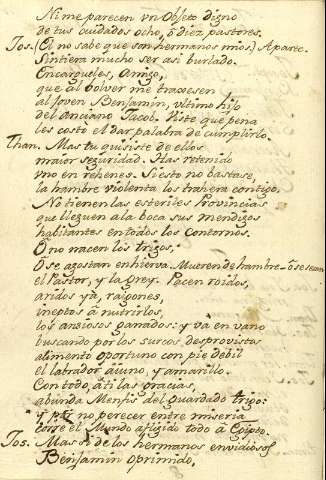 Ni me parecen vn Objeto digno
de tus cuidados ocho, ò diez pastores.
Jos. (El no sabe que son hermanos mios.) Aparte.
Sintiera mucho ser asi burlado.
Encarguèles, Amigo,
que al bolver me traxesen
al joven Benjamin, vltimo hijo
del anciano Jacob. Viste què pena
les costò el dar palabra de cumplirlo.
Than. Mas tu quisiste de ellos
maior seguridad. Has retenido
vno en rehenes. Si esto no bastase,
la hambre violenta los trahera contigo.
No tienen las esteriles Provincias
que lleguen a la boca sus mendigos
habitantes en todos los contornos.
O no nacen los trigos;
O se agostan en hierva. Mueren de hambre ò se secan
el Pastor, y la grey. Pacen roidos,
aridos yà, raigones,
ineptos à nutrirlos,
los ansiosos ganados: y và en vano
buscando por los surcos, desprovistos
alimento oportuno con pie debil
el labrador aiuno, y amarillo.
Con todo, à ti las gracias,
abunda Menfis del guardado trigo:
y por no perecer entre miseria
corre el Mundo afligido todo à Egipto.
Jos. Mas si de los hermanos envidiosos
Benjamin oprimido,